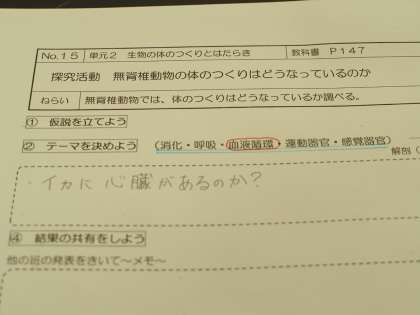 No.15 単元2 生物の体のつくりとはたらき 教科書 P147
探究活動 無脊椎動物の体のつくりはどうなっているのか
ねらい 無脊椎動物では、体のつくりはどうなっているか調べる。
① 仮説を立てよう
② テーマを決めよう (消化・呼吸・血液循環・運動器官・感覚器官)
解剖(
・イカに心臓があるのか?
④ 結果の共有をしよう
他の班の発表をきいて〜メモ〜